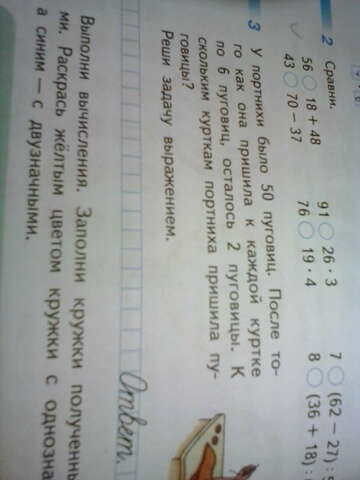 2 Сравни.
56 ◯ 18 + 48 91 ◯ 26 · 3 7 ◯ (62 − 27) :
43 ◯ 70 − 37 76 ◯ 19 · 4 8 ◯ (36 + 18) :
3 У портнихи было 50 пуговиц. После то-
го как она пришила к каждой куртке
по 6 пуговиц, осталось 2 пуговицы. К
скольким курткам портниха пришила пу-
говицы?
Реши задачу выражением.
Ответ.
Выполни вычисления. Заполни кружки полученны
ми. Раскрась жёлтым цветом кружки с однозна
а синим — с двузначными.